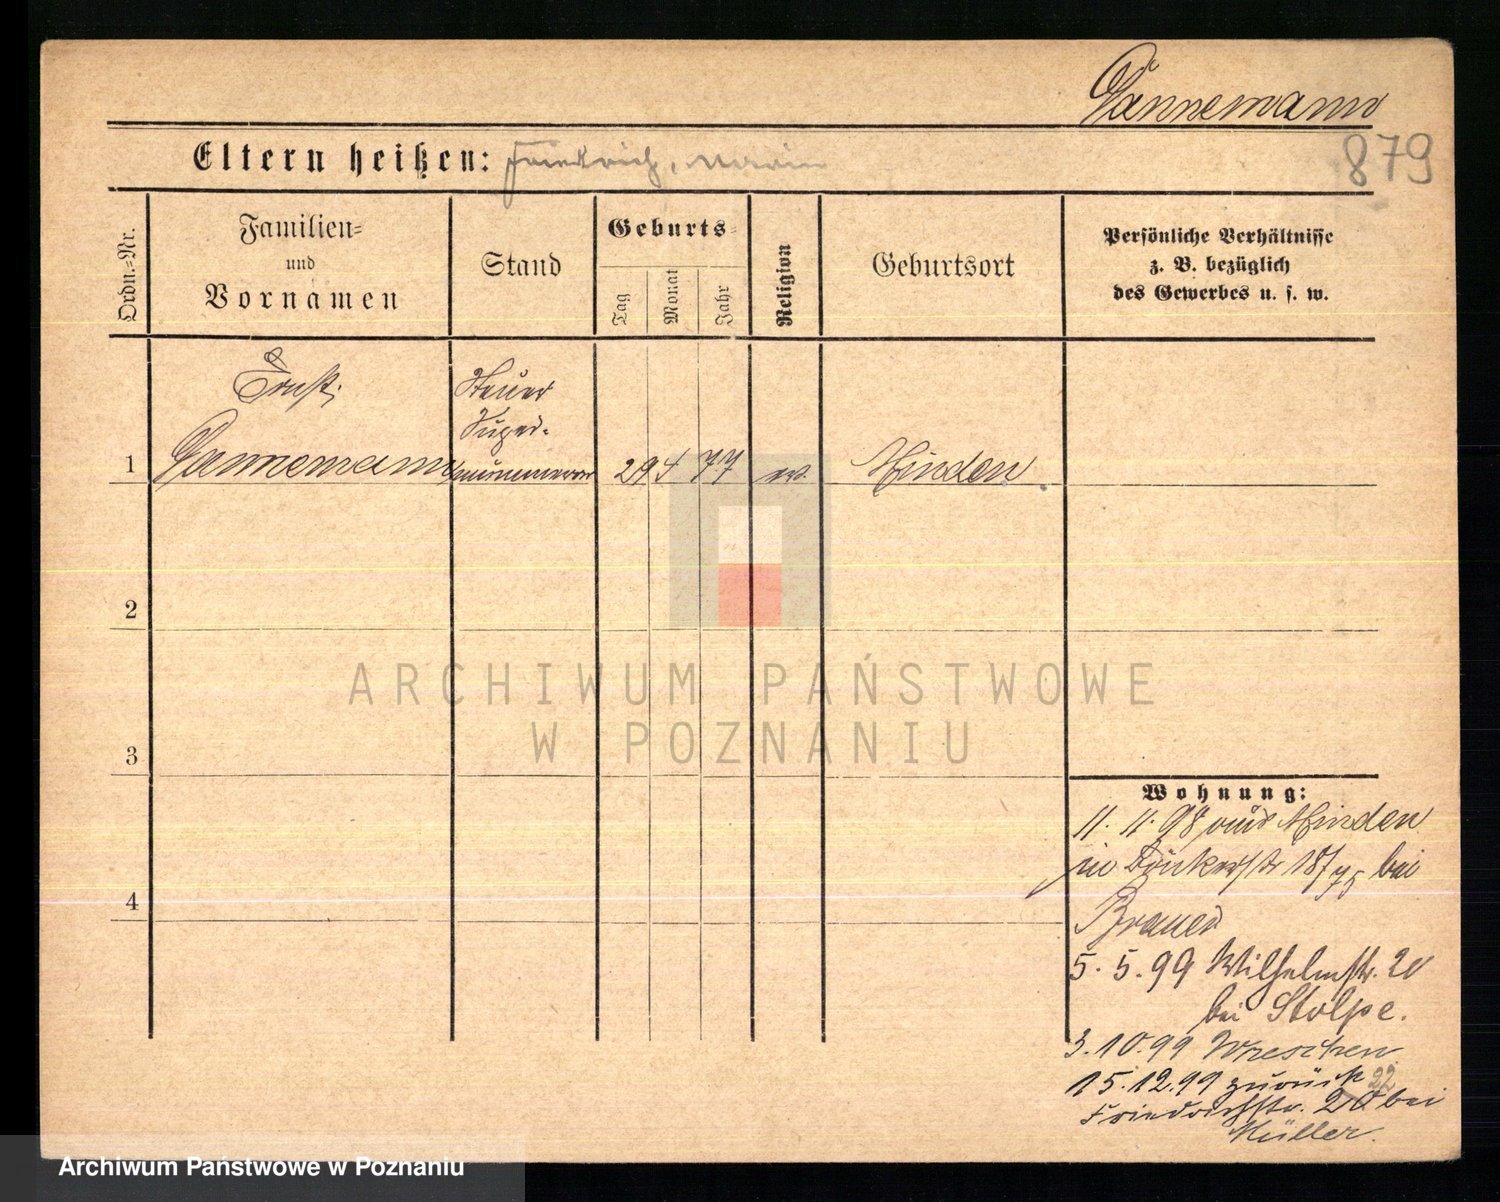 Dannemann
879
Eltern heißen: Friedrich,
Ordn.-Nr.
Familien-
und
Vornamen
Stand
Geburts-
Tag
Monat
Jahr
Religion
Geburtsort
Persönliche Verhältnisse
z. B. bezüglich
des Gewerbes u. s. w.
Ernst
Steuer
Super-
1 Dannemann numerar 29 4 77 ev. Minden
2
ARCHIWUM PAŃSTWOWE
W POZNANIU
3
Wohnung:
11. 11. 98 aus Minden
in bei
4
Brauer
5. 5. 99 Wilhelmstr. 20
bei Stolpe.
3. 10. 99 Wreschen
15. 12. 99 zurück 22
Friedrichstr. 20 bei
Müller.
Archiwum Państwowe w Poznaniu